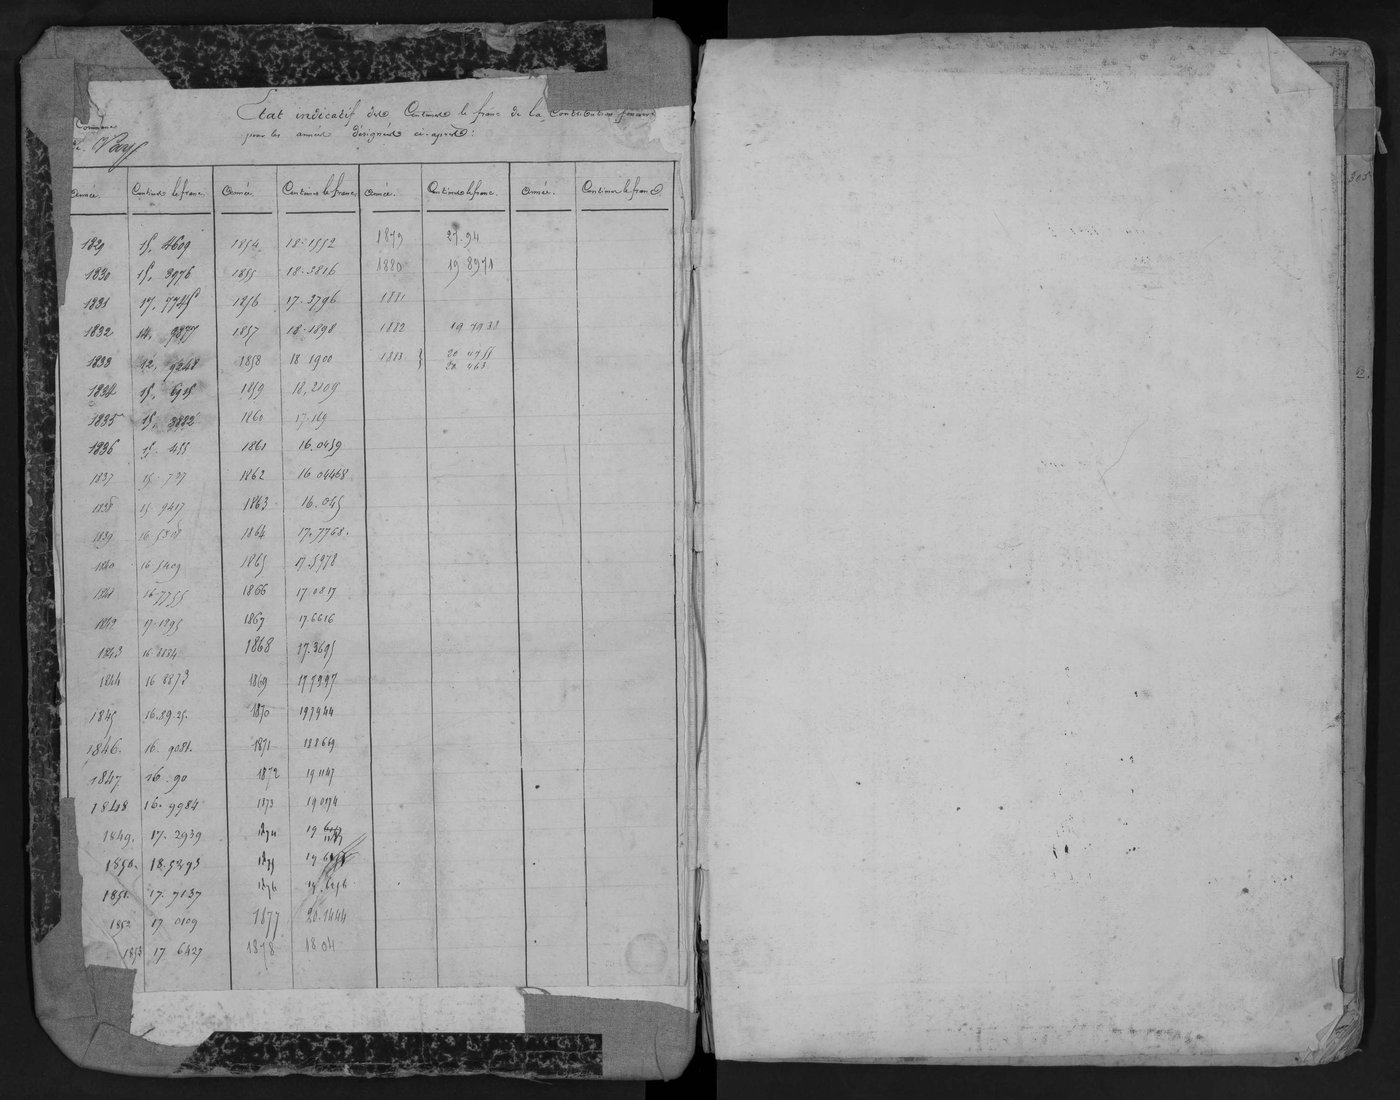 Etat indicatif des Centimes le franc de la Contribution foncière
pour les années désignées ci-après:
Commune
de Vay
Année. Centimes le franc. Année. Centimes le franc. Année. Centimes le franc. Année. Centimes le franc
1829 15. 4609 1854 18.1552 1879 21.94
1830 15. 3976 1855 18.3816 1880 19 8971
1831 17. 7745 1856 17.3796 1881
1832 14. 9877 1857 18.1898 1882 19 7938
1833 12. 9248 1858 18 1900 1883 } 20 4755
20 463
1834 15. 6915 1859 18.2109
1835 15. 3882 1860 17.169
1836 15. 455 1861 16.0459
1837 15. 737 1862 16 04468
1838 15.9417 1863 16.045
1839 1864 17.7768.
1840 16 5409 1865 17.5978
1841 16.7755 1866 17.0817
1842 17.1395 1867 17.6616
1843 16 8134 1868 17.3695
1844 16 8873 1869 17 7397
1845 16.89.25. 1870 19 7944
1846. 16. 9081. 1871 18 8669
1847 16. 90 1872 19 1147
1848 16. 9984 1873 19 0174
1849. 17. 2939 1874 19
1850. 18.5293 1875
1851. 17. 7137 1876 19.6256
1852 17 0109 1877 20.1444
1853 17 6427 1878 18 04
305